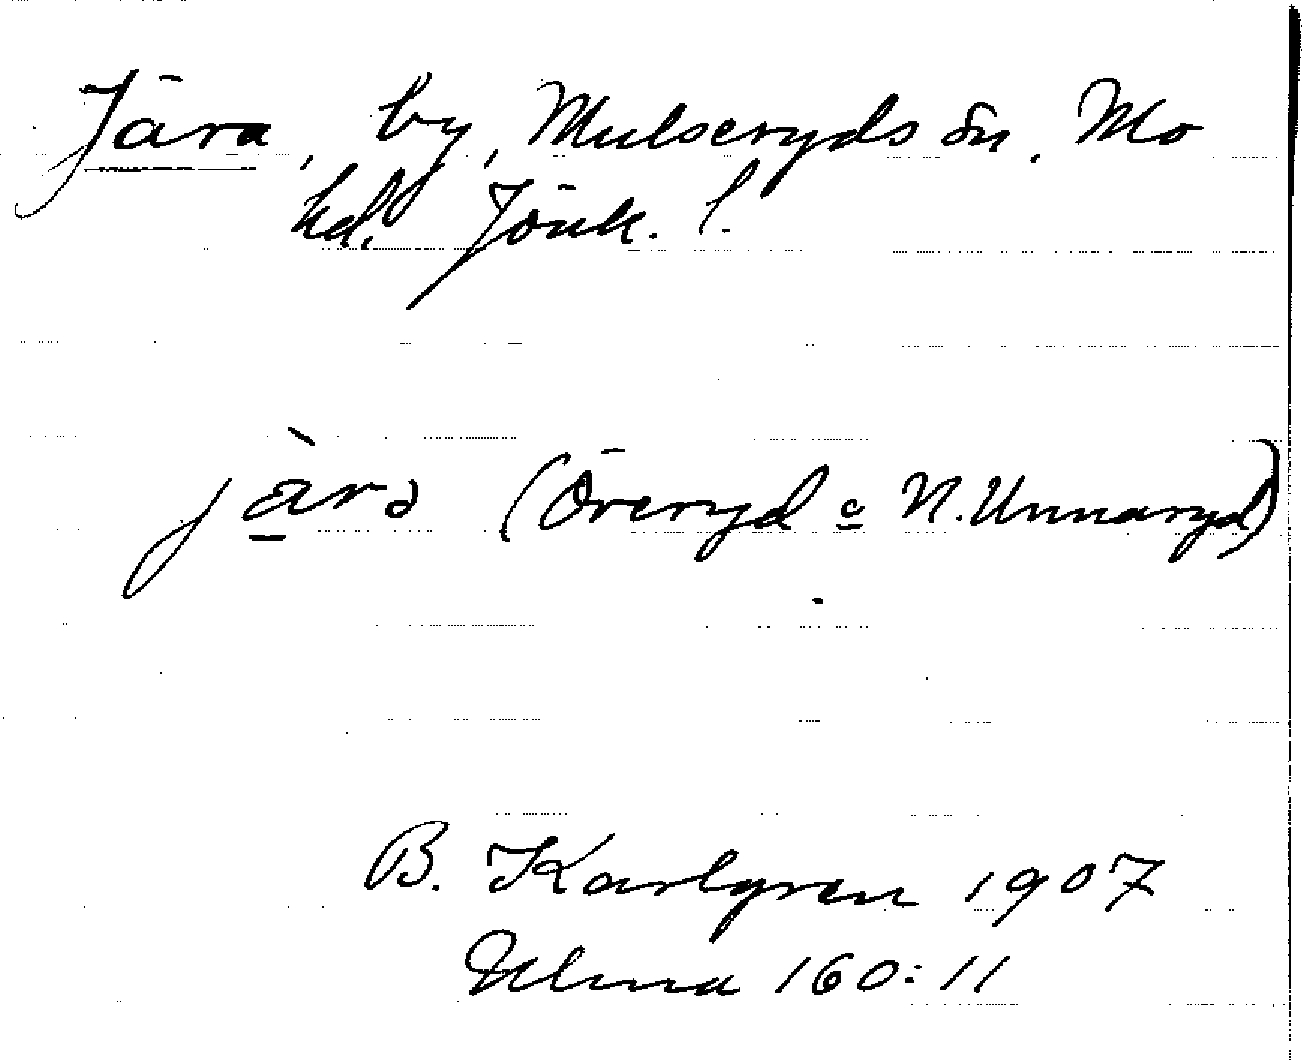 Jära, by, Mulseryds sn. Mo
hd. Jönk. l.
jära (Öreryd o N. Unnaryd)
B. Karlgren 1907
Ulma 160:11